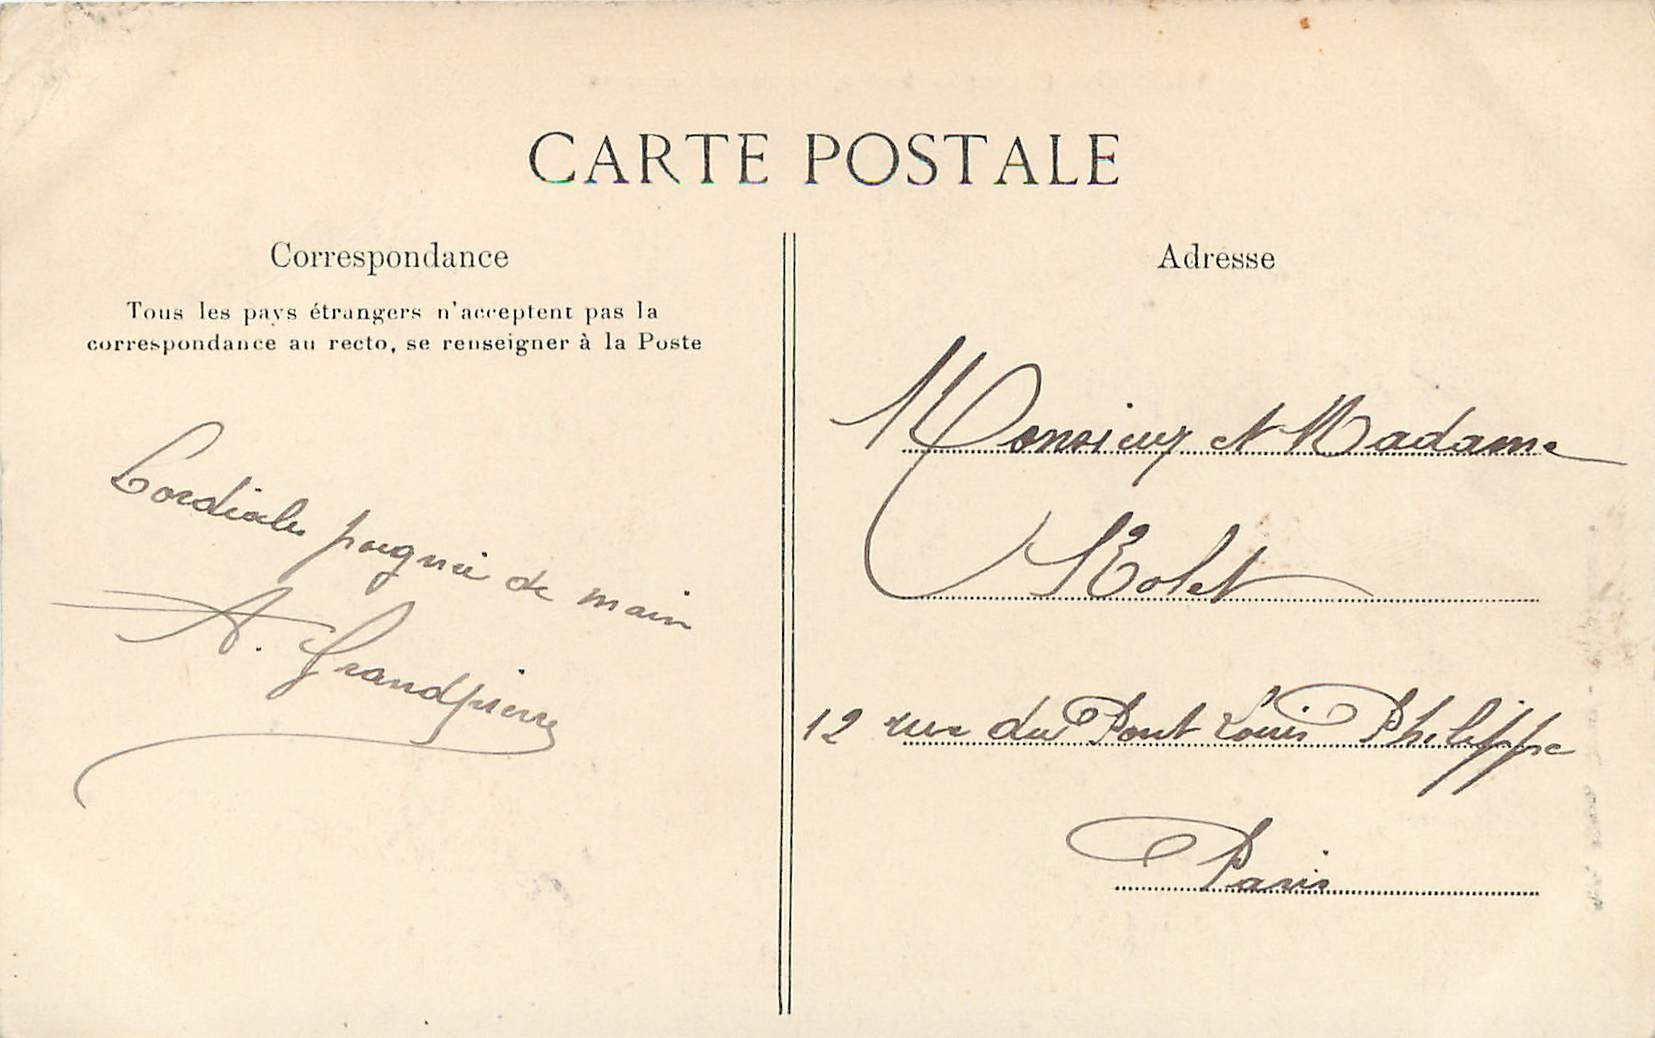 CARTE POSTALE
Correspondance
Tous les pays étrangers n'acceptent pas la
correspondance au recto, se renseigner à la Poste
Cordiale poignée de main
A. Grandpierre
Adresse
Monsieur et Madame
Rolet
12 rue du Pont Louis Philippe
Paris